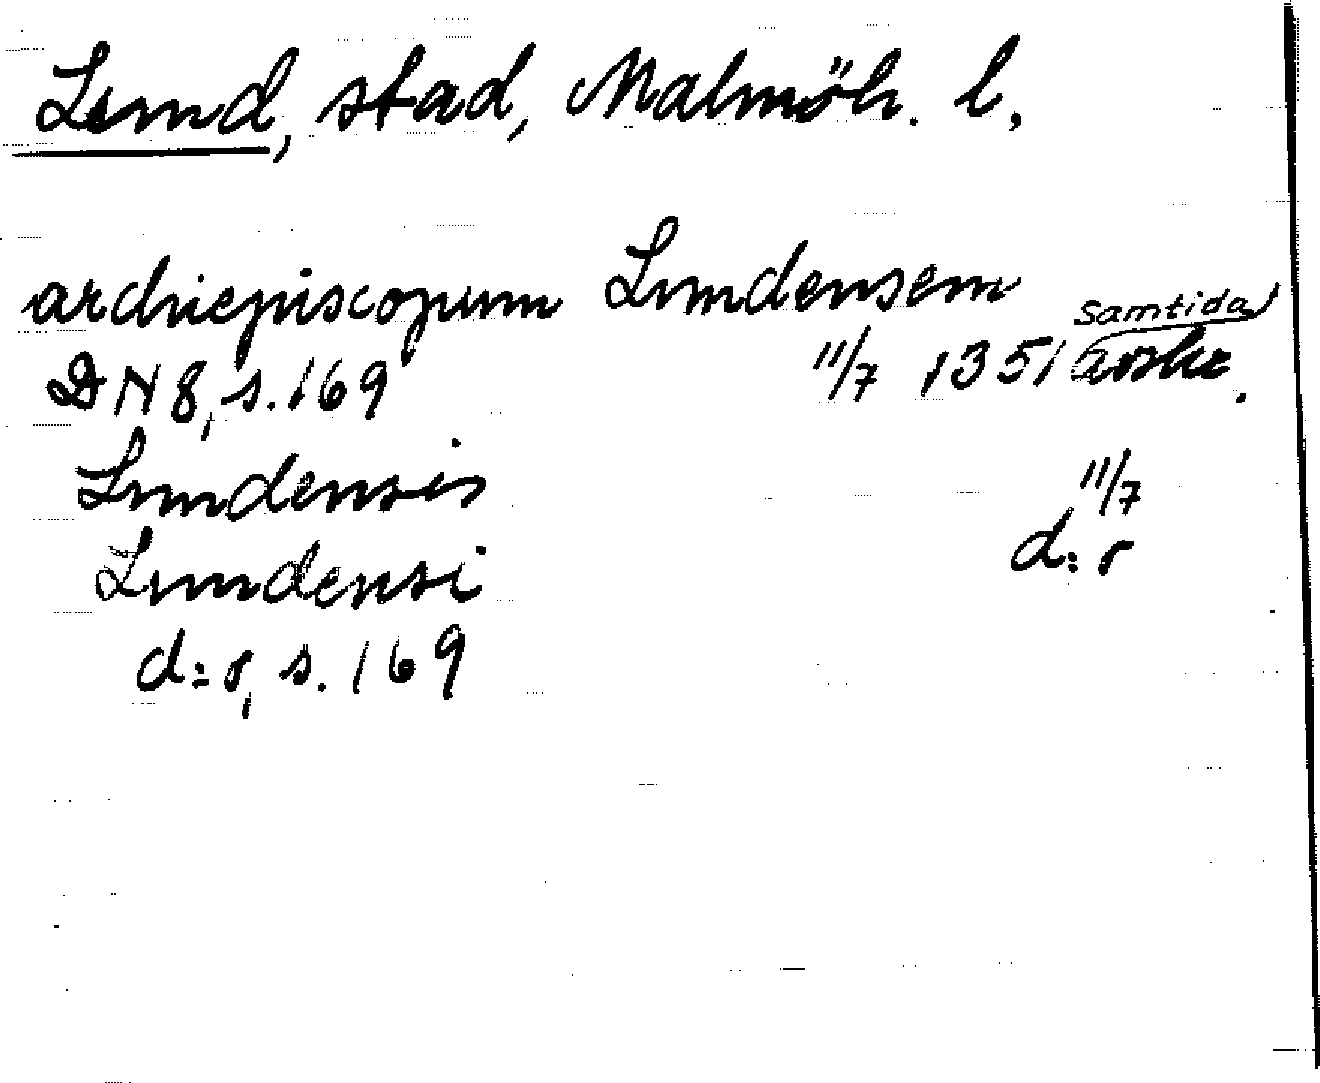 Lund, stad, Malmöh. l.
archiepiscopum Lundensem
samtida
DN 8, s. 169 11/7 1351 avskr.
Lundensis 11/7
Lundensi d:o
d:o, s. 169